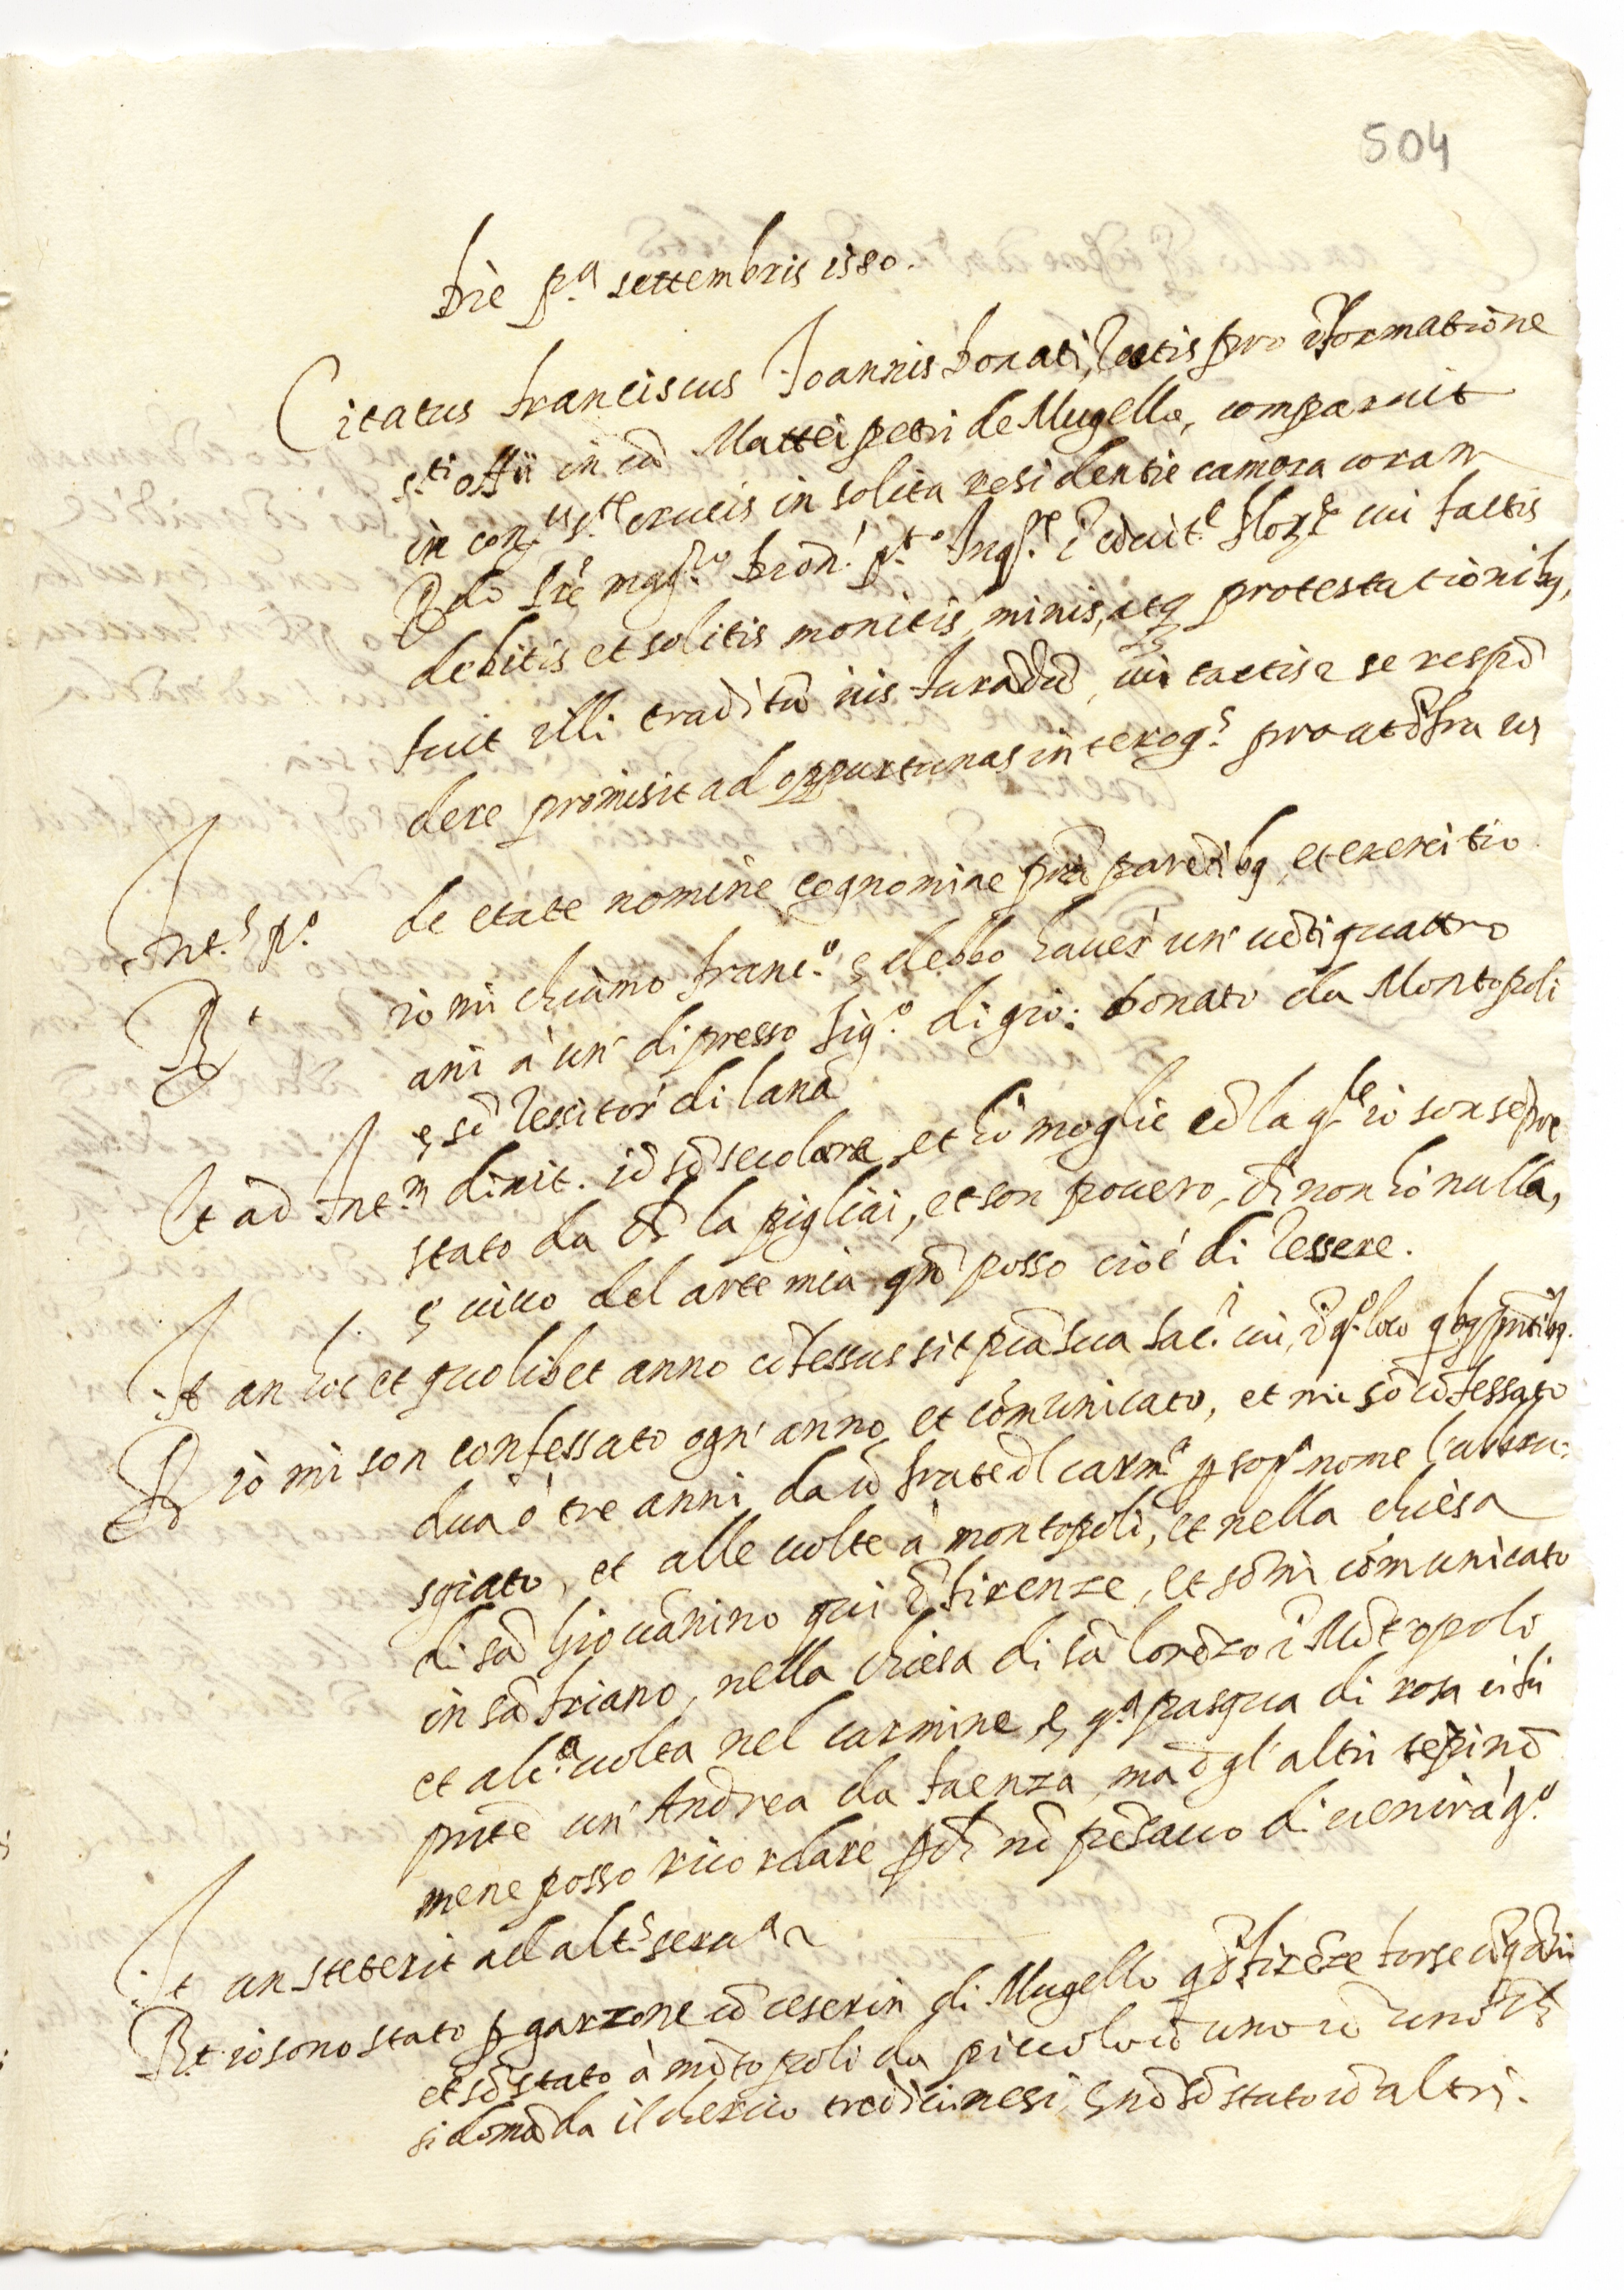 504
Die p.ª settembris 1580.
Citatus Franciscus Joannis Donati, testis pro īformatione
s.ti offii in cā Mattei petri de Mugello, comparuit
in con.tu s.te crucis in solita residentie camera coram
Rdo fre mag.ro Dion. Inq.re ī civit.e Flor.e cui factis
debitis et solitis monitis, minis, atq protestationibq,
fuit illi traditū ius Iurādū, cui tactis se respō
dere promisit ad oppurtunas interog.s prout īfra
Int.s p.º de etate nomine cognomine prīa parētibq, et exercitio
R.t io mi chiamo Franc.º e debbo haver un' vētiquattro
ani à un' dipresso fig.º di gio: donato da Montopoli
e sō tessitor di lana
It ad Int.m dixit. iō sō secolare, et hò moglie cō la q.le io son sēpre
stato da chē la pigliai, et son povero, chē non hò nulla,
e vivo del arte mia qñ posso cioè di tessere.
It an hoc et quolibet anno cōfessus sit pctā sua sac.i cui, ī q.º loco qbq pntibq.
R io mi son confessato ogn' anno et cōmunicato, et mi sō cōfessato
dua ò tre anni da ū frate dl carm.e p sop.ª nome l'abbru:
sgiato, et alle volte à montopoli, et nella chiesa
di sā Giovānino qui ī firenze, et sōmi cōmunicato
in sā friano, nella chiesa di sā lorēzo ī Mōtopoli
et alc.ª volta nel carmine e q.ª pasqua di rosa ci fu
pnte un' Andrea da faenza, ma dgl' altri tēpi nō
mene posso ricordare pchē nō pēsavo di venir à q.º
It an steterit ad alt.s
R.t io sono stato p garzone cō ceserin di Mugello q ī firēze forse
et sō stato à mōtopoli da piccolo cō uno
si domāda il cherico tredici mesi, e nō sō stato cō altri.